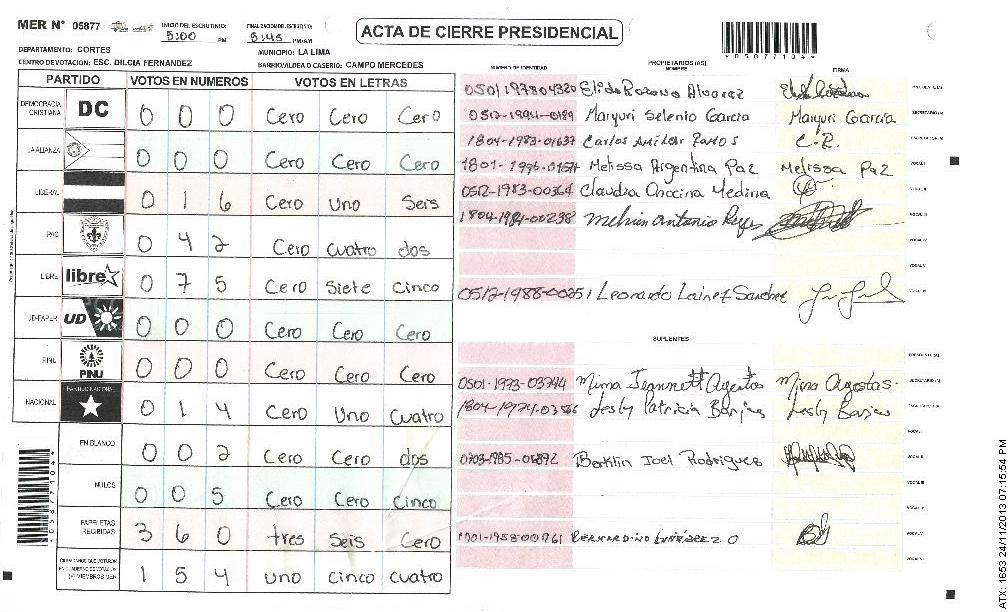 MER N° 05877
INICIO DEL ESCRUTINIO: 5:00 PM
FINALIZACION DEL ESCRUTINIO: 5:45 PM/AM
ACTA DE CIERRE PRESIDENCIAL
*05877104*
DEPARTAMENTO: CORTES
MUNICIPIO: LA LIMA
CENTRO DE VOTACION: ESC. DILCIA FERNANDEZ
BARRIO/ALDEA O CASERIO: CAMPO MERCEDES
PARTIDO VOTOS EN NUMEROS VOTOS EN LETRAS
DEMOCRACIA CRISTIANA DC 0 0 0 Cero Cero Cero
LA ALIANZA 0 0 0 Cero Cero Cero
LIBERAL 0 1 6 Cero Uno Seis
PAC 0 4 2 Cero cuatro dos
LIBRE libre 0 7 5 Cero Siete Cinco
UD-FAPER UD 0 0 0 Cero Cero Cero
PINU PINU 0 0 0 Cero Cero Cero
NACIONAL PARTIDO NACIONAL 0 1 4 Cero Uno Cuatro
EN BLANCO 0 0 2 Cero Cero dos
NULOS 0 0 5 Cero Cero Cinco
PAPELETAS RECIBIDAS 3 6 0 tres Seis Cero
CIUDADANOS QUE VOTARON EN CUADERNO DE VOTACION (+) MIEMBROS MER 1 5 4 uno cinco cuatro
*05877104*
NUMERO DE IDENTIDAD PROPIETARIOS (AS) NOMBRE FIRMA
0501197804320 Elida Rozana Alvarez PRESIDENTE (A)
0512-1994-0189 Maryuri Selenio Garcia Maryuri Garcia SECRETARIO (A)
1804-1983-01637 Carlos Amilcar Ramos C.R. ESCRUTADOR (A)
Melissa Argentina Paz Melissa Paz VOCAL I
0512-1983-00364 Claudia Medina VOCAL II
1804-1984-00238 Melvin Antonio Reyes VOCAL III
VOCAL IV
VOCAL V
0512-1988-00251 Leonardo Lainez Sanchez VOCAL VI
SUPLENTES
PRESIDENTE (A)
0501-1973-03744 Mirna Jeannett Agostas Mirna Agostas. SECRETARIO (A)
Lesly Patricia Barjas Lesly Barjas ESCRUTADOR (A)
VOCAL I
Berklin Joel Rodriguez VOCAL II
VOCAL III
VOCAL IV
BERNARDINO VOCAL V
VOCAL VI
ATX: 1653 24/11/2013 07:15:54 PM